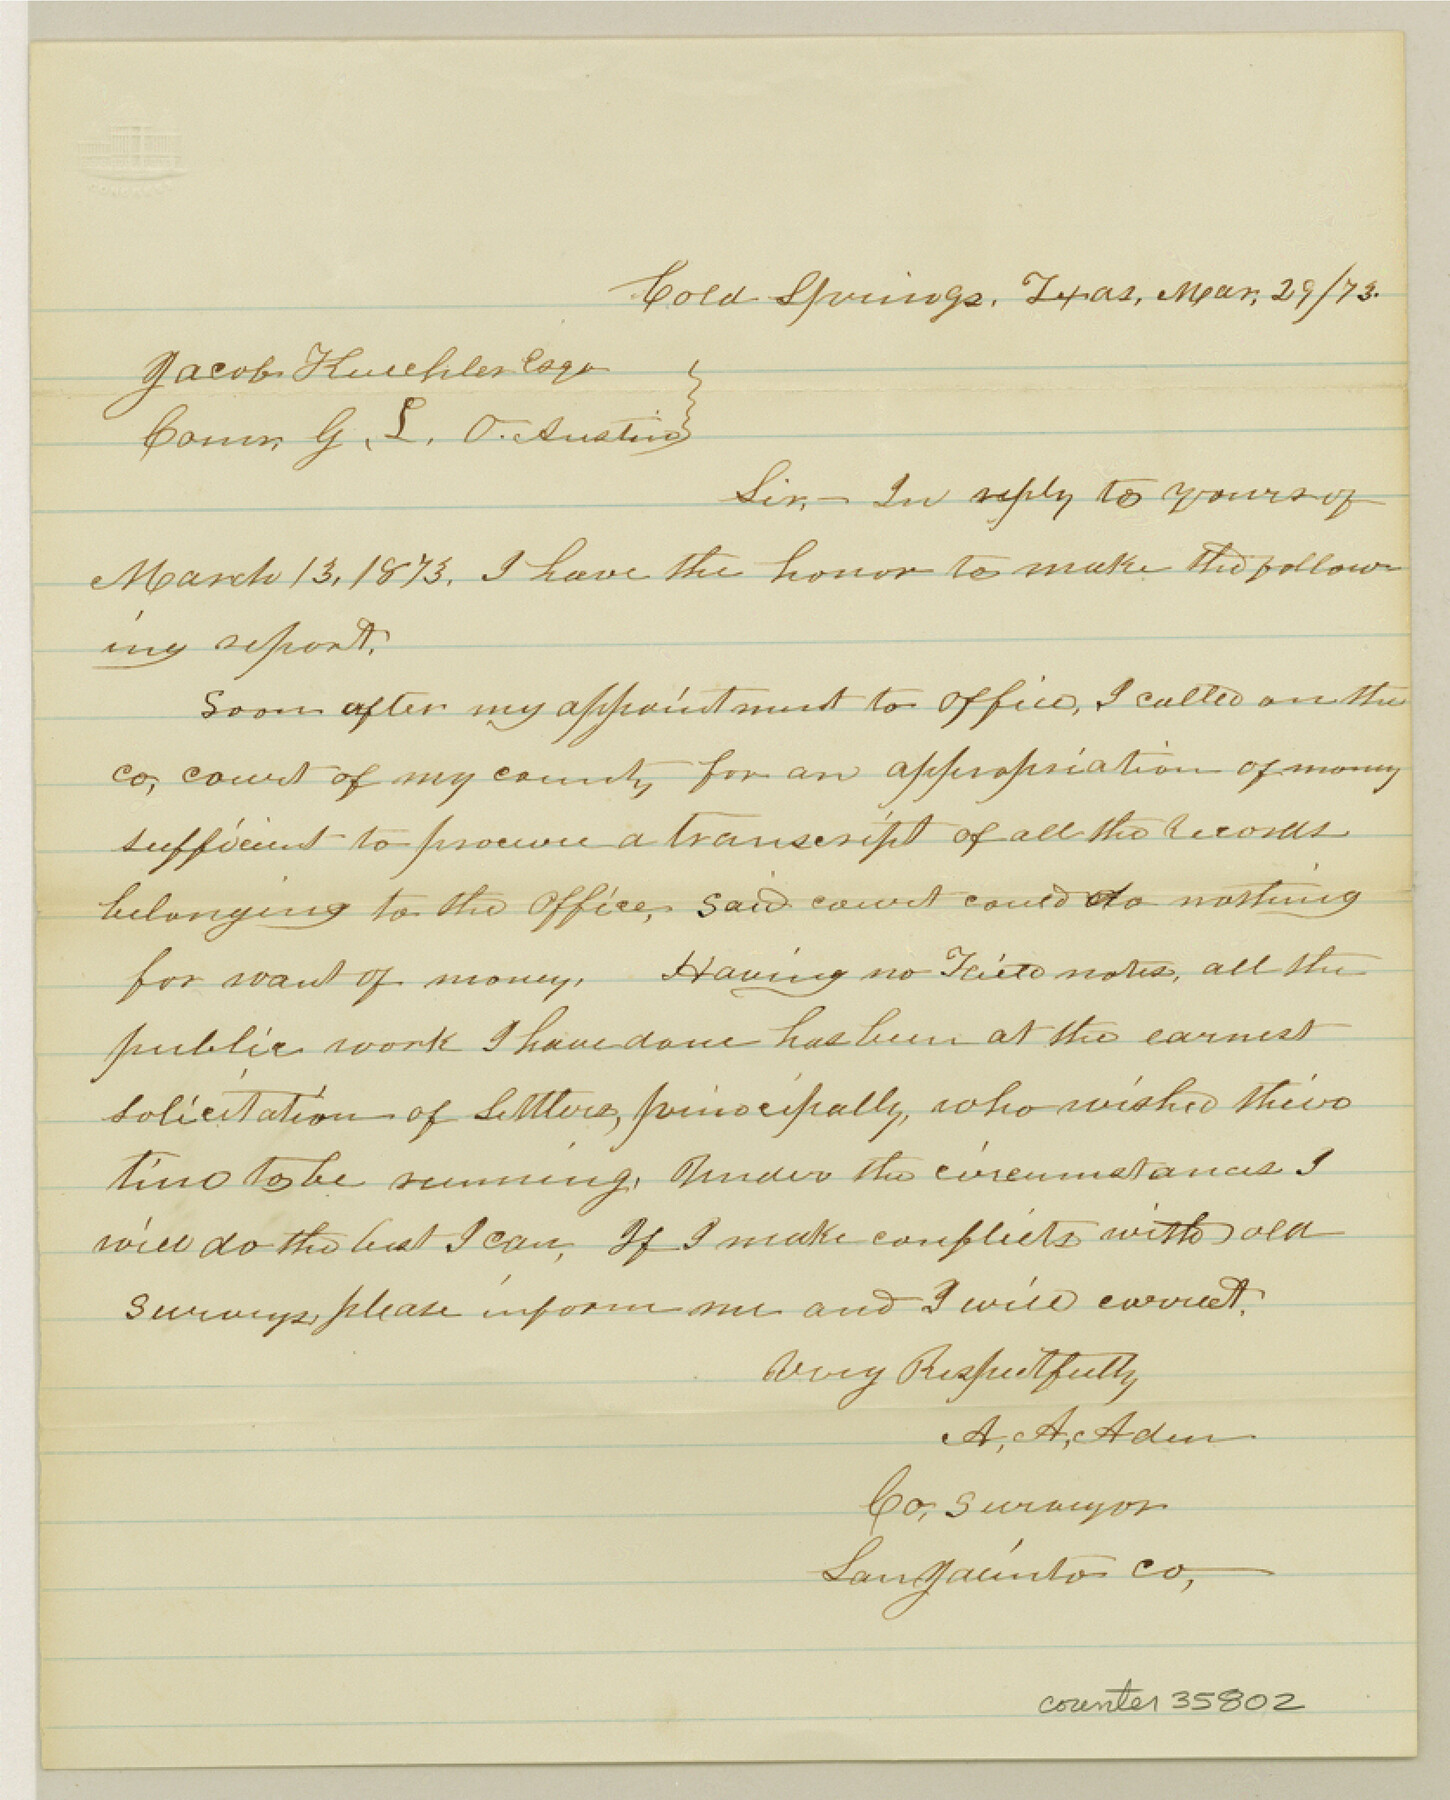 CONGRESS
Cold Springs, Texas, Mar, 29/73.
Jacob Kuechler Esqr
Comr, G. L. O. Austin
Sir, – In reply to yours of
March 13, 1873, I have the honor to make the follow-
ing report:
Soon after my appointment to office, I called on the
co, court of my county for an appropriation of money
sufficient to procure a transcript of all the records
belonging to the Office, said court could do nothing
for want of money. Having no Field notes, all the
public work I have done has been at the earnest
solicitation of settlers, principally, who wished their
time to be running. Under the circumstances I
will do the best I can, If I make conflicts with old
surveys, please inform me and I will correct.
Very Respectfully
A, A, Aden
Co, Surveyor
San Jacinto Co,
counter 35802